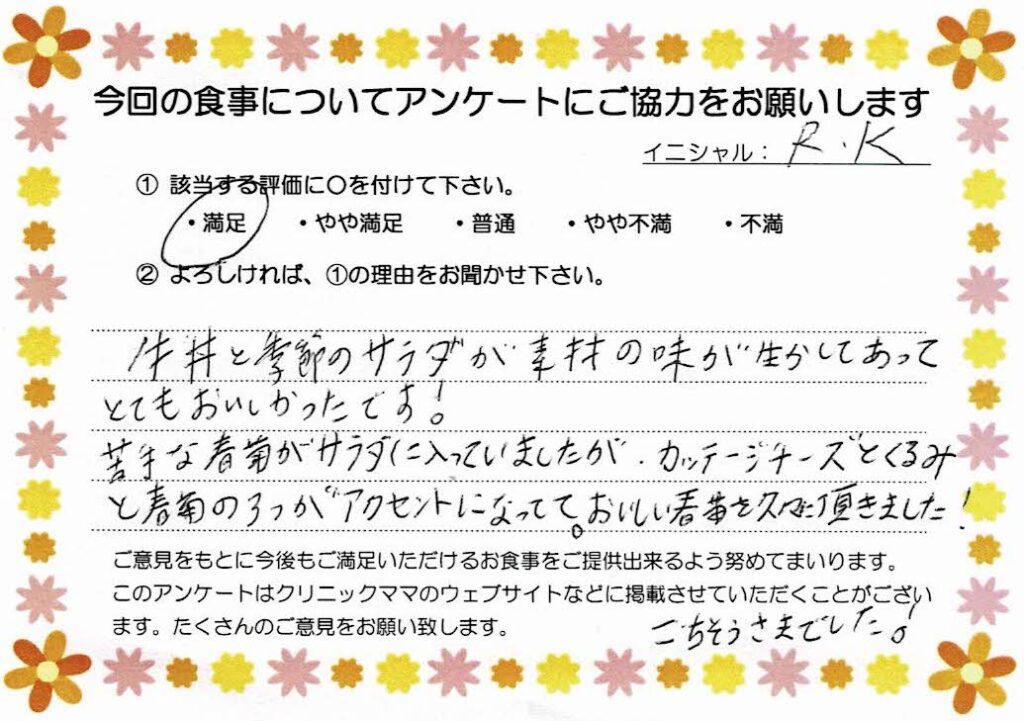 今回の食事についてアンケートにご協力をお願いします
イニシャル： R.K
① 該当する評価に〇を付けて下さい。
・満足 ・やや満足 ・普通 ・やや不満 ・不満
② よろしければ、①の理由をお聞かせ下さい。
牛丼と季節のサラダが素材の味が生かしてあって
とてもおいしかったです！
苦手な春菊がサラダに入っていましたが、カッテージチーズとくるみ
と春菊の3つがアクセントになってて。おいしい春菊を久々に頂きました！
ご意見をもとに今後もご満足いただけるお食事をご提供出来るよう努めてまいります。
このアンケートはクリニックママのウェブサイトなどに掲載させていただくことがござい
ます。たくさんのご意見をお願い致します。
ごちそうさまでした！